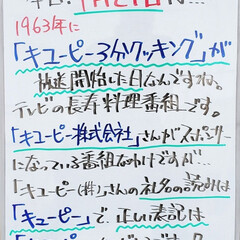 1963年に
「キユーピー3分クッキング」が
放送開始した日なんですね。
テレビの長寿料理番組です。
「キユーピー株式会社」さんがスポンサー
になっている番組なわけですが…
「キユーピー(株)」さんの社名の読みは
「キューピー」で、正しい表記は